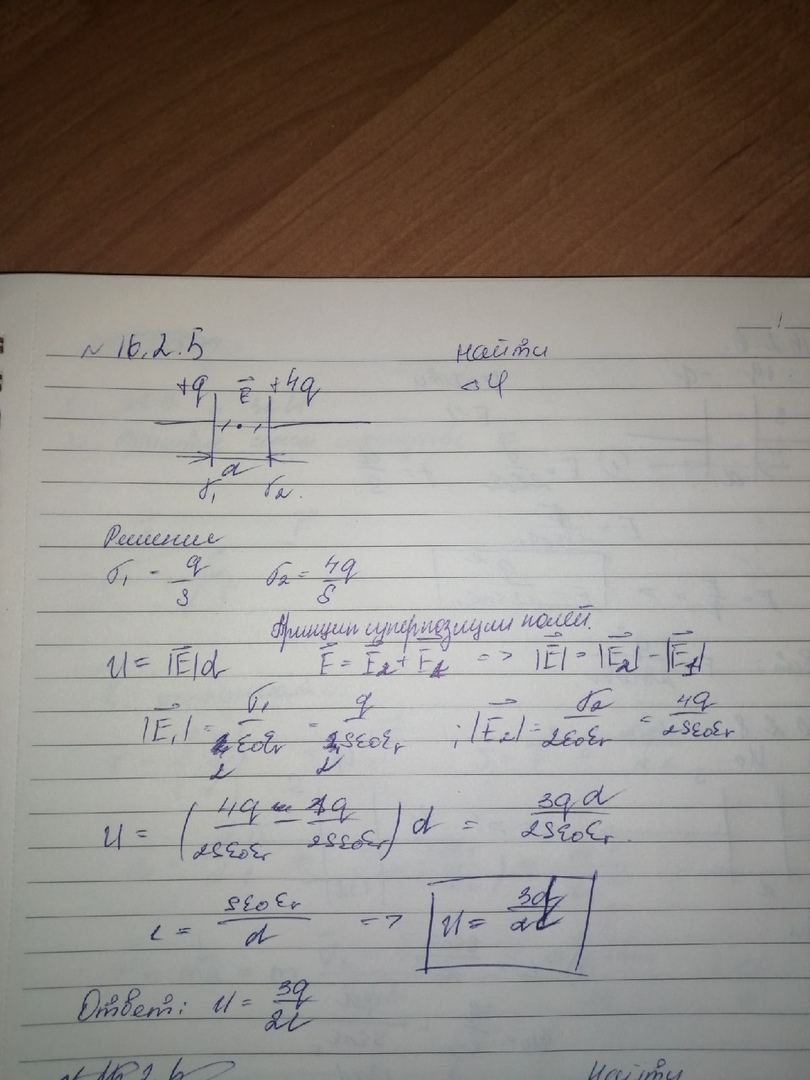 № 16.2.5
Найти
Δφ
+q E⃗ +4q
d
σ₁ σ₂.
Решение
σ₁ = q/S σ₂ = 4q/S
Принцип суперпозиции полей.
U = |E⃗|d E⃗ = E⃗₂ + E⃗₁ => |E⃗| = |E⃗₂| - |E⃗₁|
|E⃗₁| = σ₁/2ε₀εᵣ = q/2Sε₀εᵣ ; |E⃗₂| = σ₂/2ε₀εᵣ = 4q/2Sε₀εᵣ
U = (4q/2Sε₀εᵣ - 1q/2Sε₀εᵣ) d = 3qd/2Sε₀εᵣ.
C = Sε₀εᵣ/d => U = 3q/2C
Ответ: U = 3q/2C
№ 16.2.6 Найти